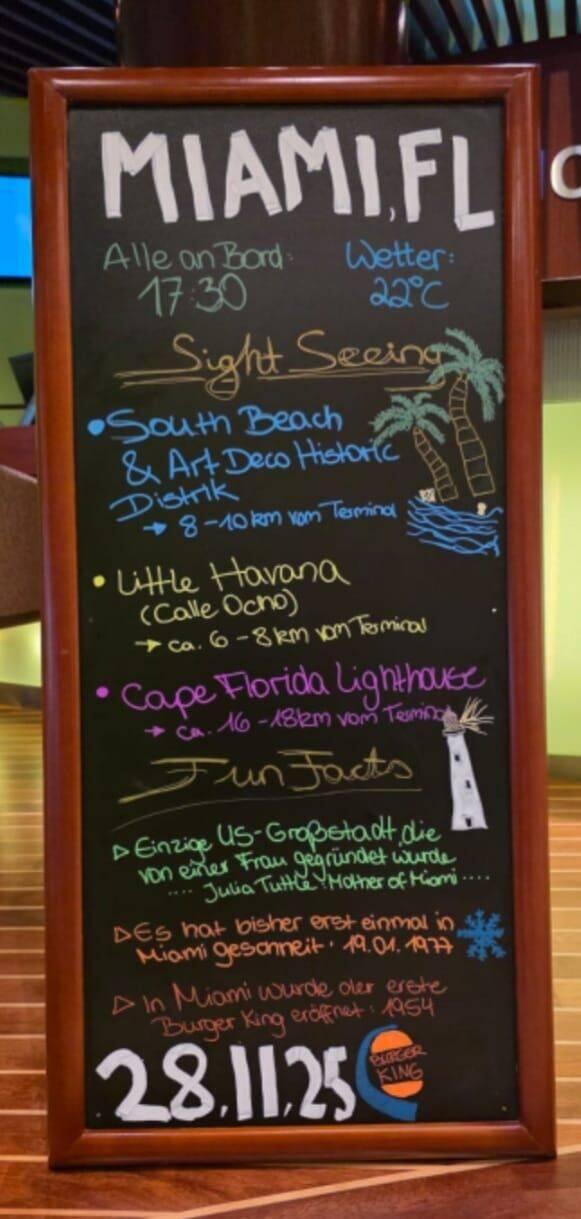 MIAMI, FL
Alle an Bord: Wetter:
17:30 22°C
Sight Seeing
• South Beach
& Art Deco Historic
Distrik
→ 8-10 km vom Terminal
• Little Havana
(Calle Ocho)
→ ca. 6-8 km vom Terminal
• Cape Florida Lighthouse
→ ca. 16-18km vom Terminal
Fun Facts
▷ Einzige US-Großstadt, die
von einer Frau gegründet wurde
.... Julia Tuttle: Mother of Miami ....
▷ Es hat bisher erst einmal in
Miami geschneit: 19.01.1977
▷ In Miami wurde der erste
Burger King eröffnet: 1954
28.11.25
BURGER
KING